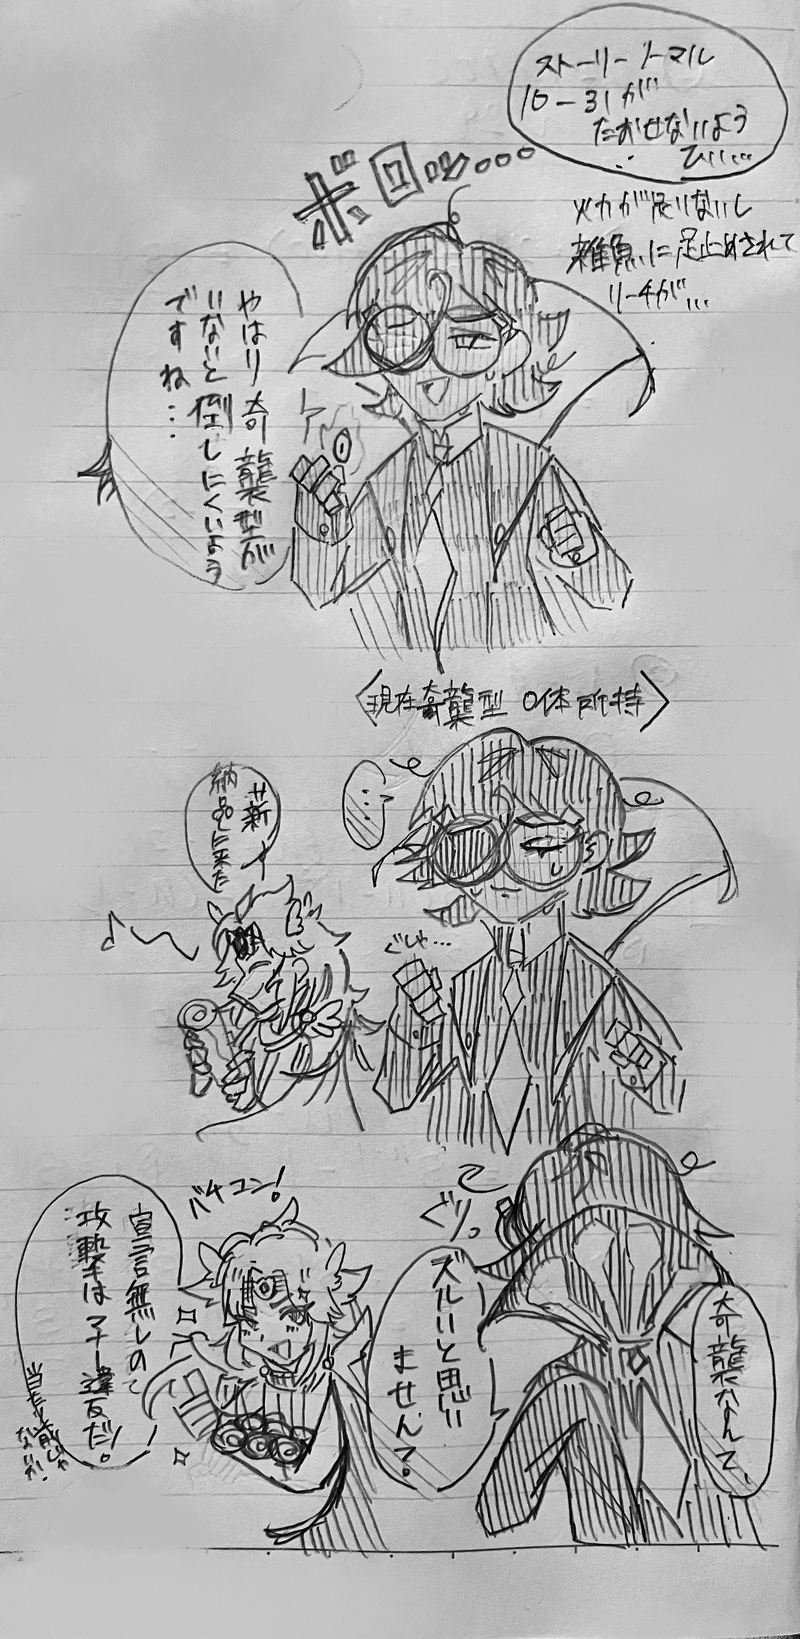 ストーリーノーマル
10-31が
たおせないよう
ひぃ…
火力が足りないし
雑魚に足止めされて
リーチが…
ボロッ…
やはり奇襲型が
いないと倒しにくいよう
ですね…
〈現在奇襲型 0体所持〉
…
新
納品に来た
ぐしゃ…
ぐりっ
奇襲なんて、
ズルいと思い
ません?
バチコン!
宣言無しの
攻撃はマナー違反だ!
当たり前じゃ
ないか!